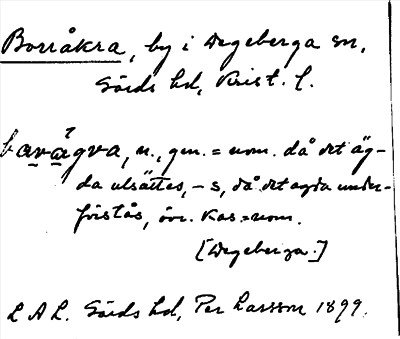 Borråkra, by i Degeberga sn,
Gärds hd, Krist. l.
bavågva, n., gen. = nom. då det äg-
da utsättes, -s, då det ägda under-
förstås, övr. kas = nom.
[Degeberga.]
L A L. Gärds hd, Per Larsson 1899.